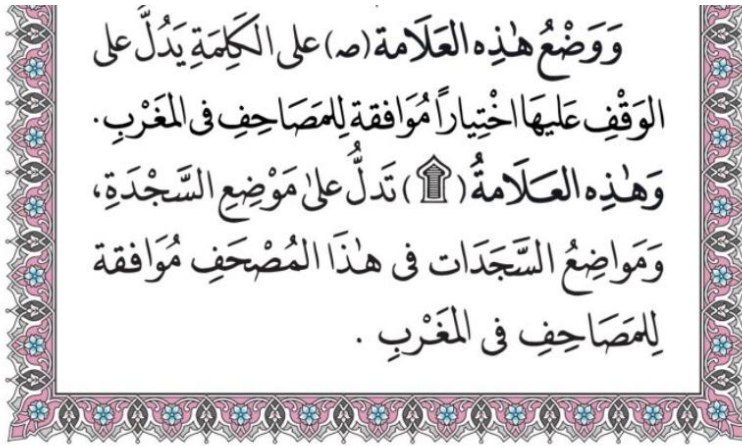 وَوَضْعُ هٰذِه العَلَامة (صہ) على الكَلِمَةِ يَدُلّ على
الوَقْفِ عَليهَا اخْتِيَاراً مُوَافقة لِلمَصَاحِفِ فى المَغْرْبِ.
وَهٰذِه العَلَامةُ (۩) تَدلُّ علىٰ مَوْضِعِ السَّجْدَةِ،
وَمَواضِعُ السَّجَدَات فى هٰذَا المُصْحَفِ مُوَافقة
لِلمَصَاحِفِ فى المَغْرْبِ .